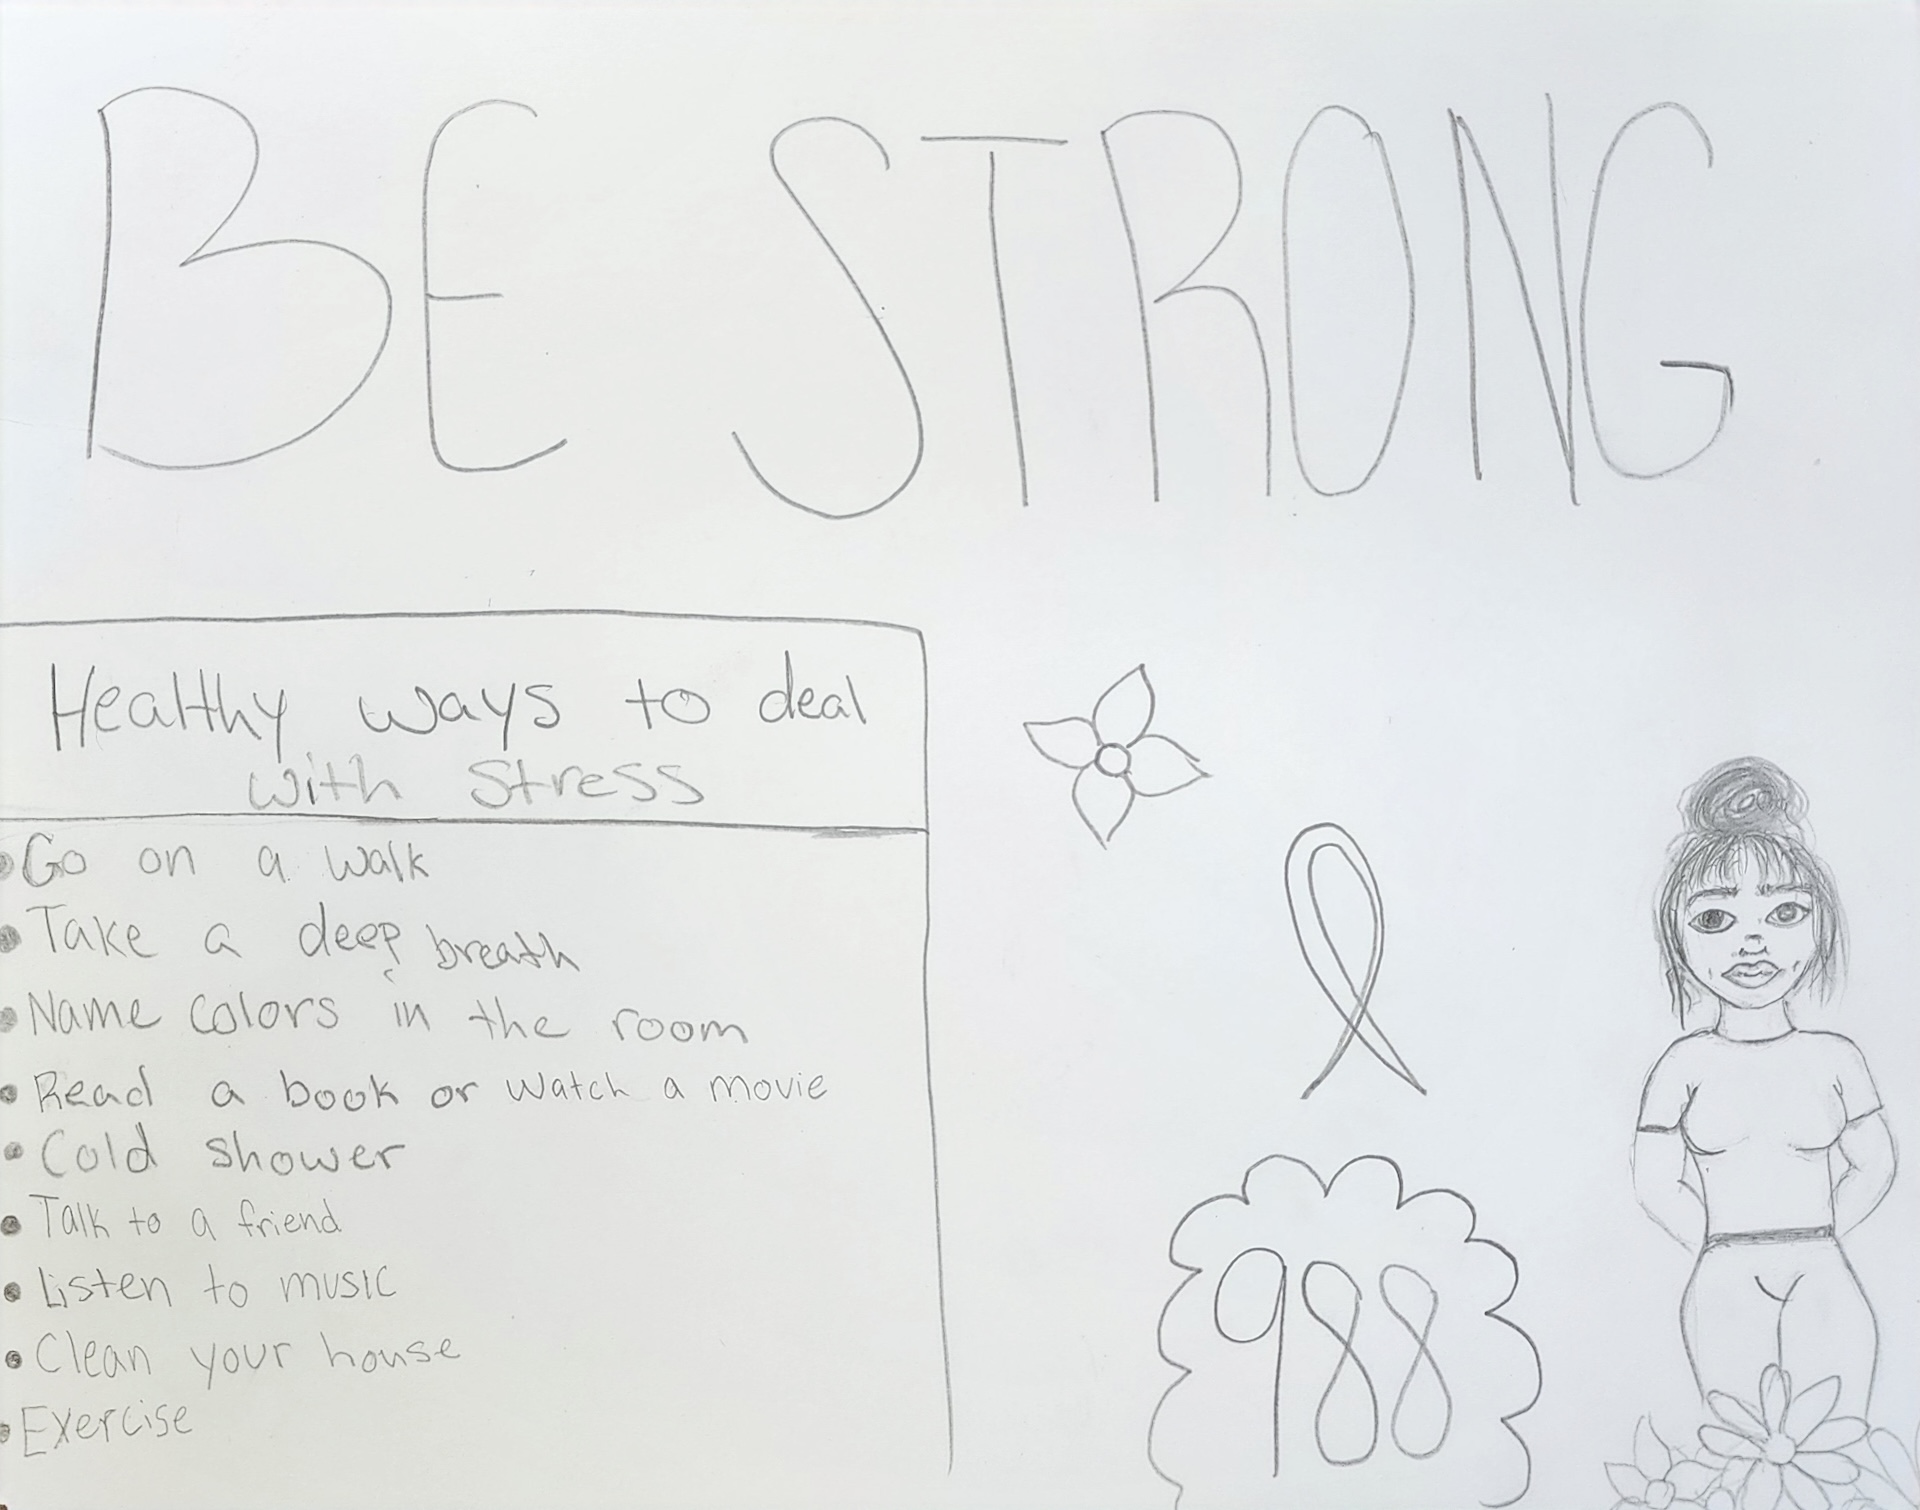 BE STRONG
Healthy ways to deal
with stress
• Go on a walk
• Take a deep breath
• Name colors in the room
• Read a book or watch a movie
• Cold shower
• Talk to a friend
• Listen to music
• Clean your house
• Exercise
988